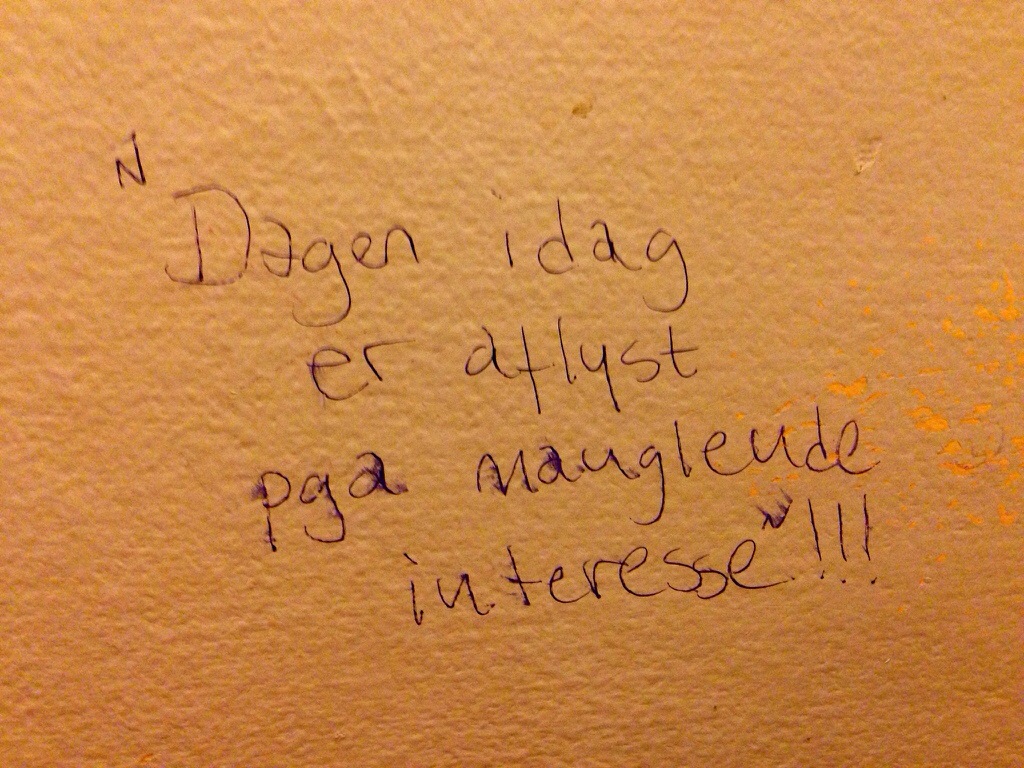 "Dagen idag
er aflyst
pga manglende
interesse"!!!